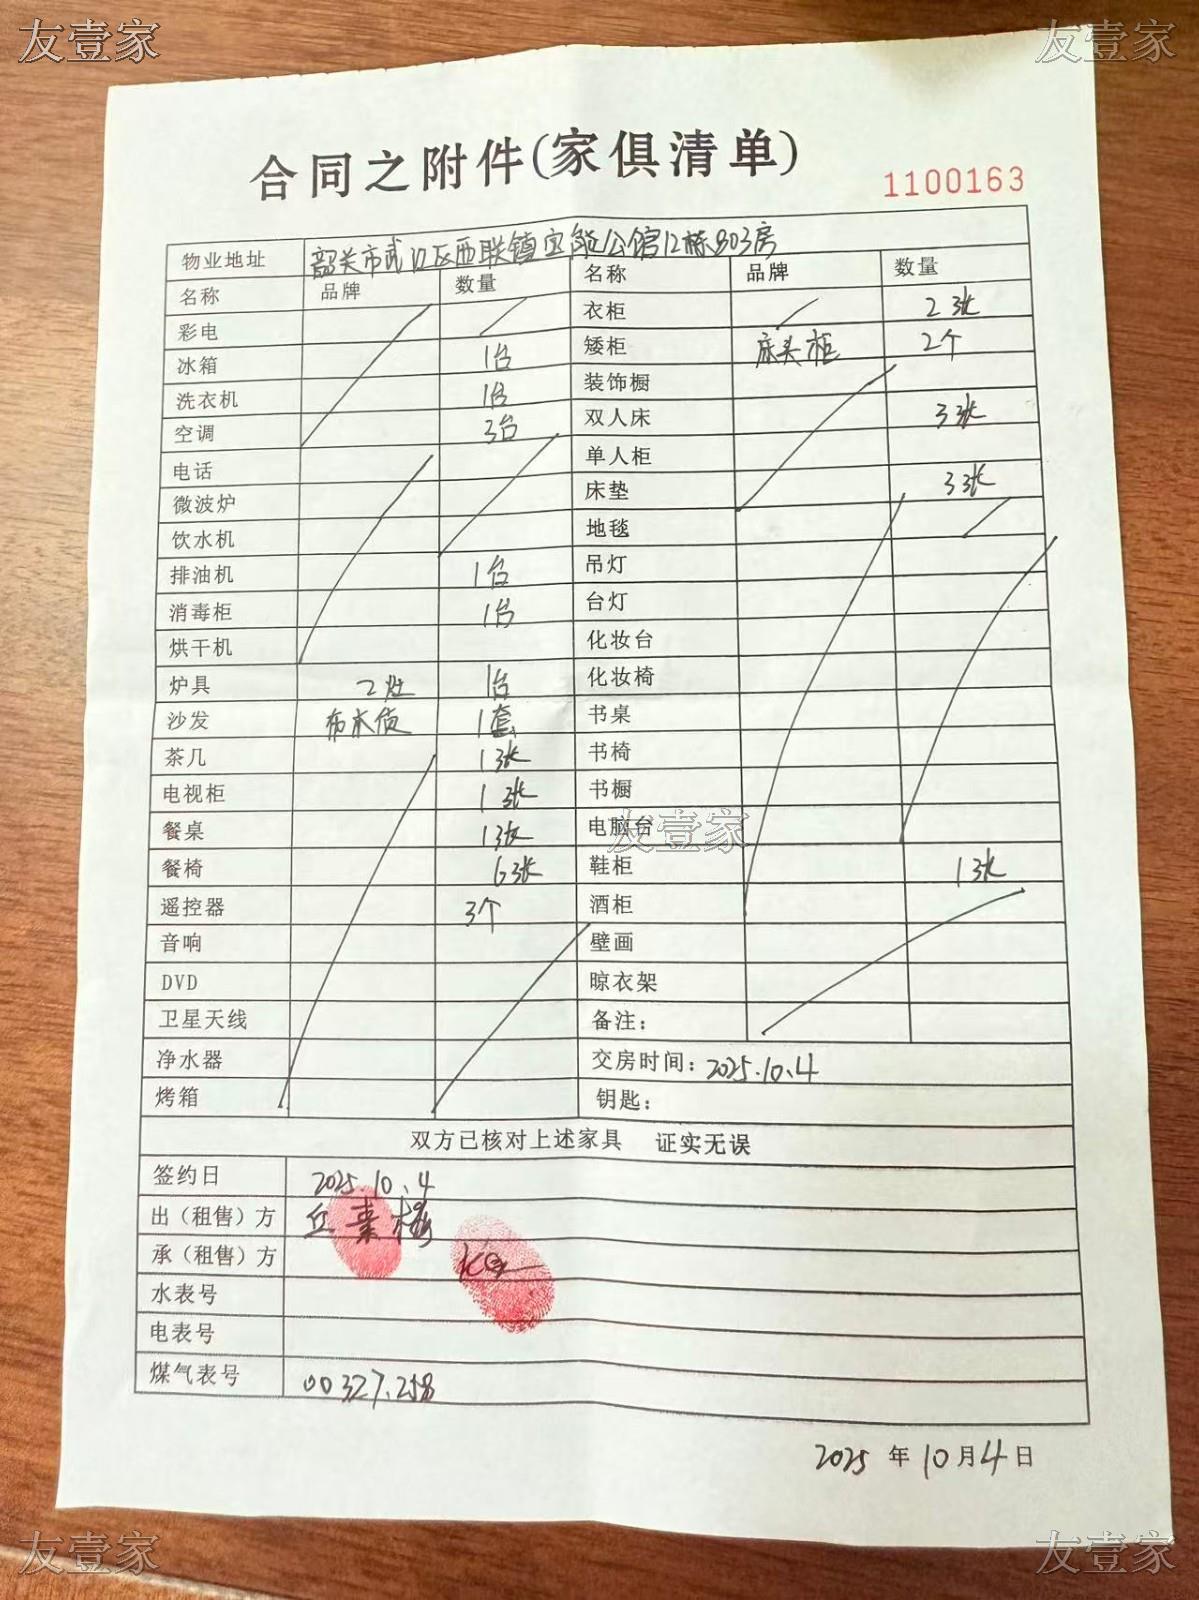 友壹家 友壹家
合同之附件(家俱清单)
1100163
物业地址 韶关市武江区西联镇宝能公馆12栋803房
名称 品牌 数量 名称 品牌 数量
彩电 衣柜 2张
冰箱 1台 矮柜 床头柜 2个
洗衣机 1台 装饰橱
空调 3台 双人床 3张
电话 单人柜
微波炉 床垫 3张
饮水机 地毯
排油机 1台 吊灯
消毒柜 1台 台灯
烘干机 化妆台
炉具 2灶 1台 化妆椅
沙发 布木质 1套 书桌
茶几 1张 书椅
电视柜 1张 书橱
餐桌 1张 电脑台
友壹家
餐椅 6张 鞋柜 1张
遥控器 3个 酒柜
音响 壁画
DVD 晾衣架
卫星天线 备注：
净水器 交房时间：2025.10.4
烤箱 钥匙：
双方已核对上述家具 证实无误
签约日 2025.10.4
出（租售）方 丘
承（租售）方
水表号
电表号
煤气表号 00327.258
2025 年 10 月 4 日
友壹家 友壹家